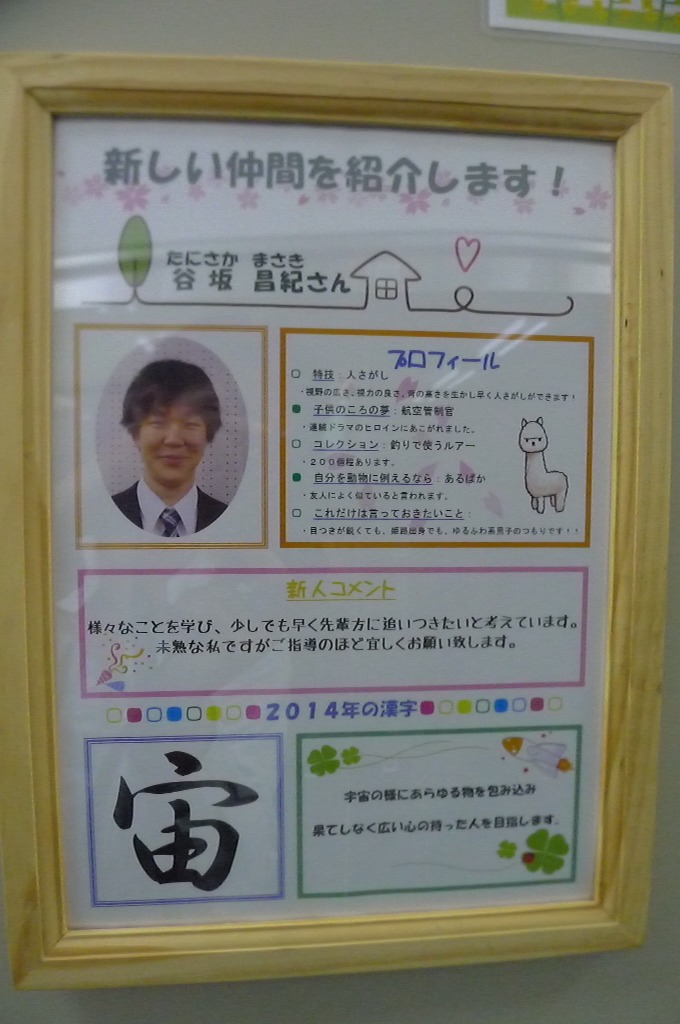 新しい仲間を紹介します！
たにさか まさき
谷坂 昌紀さん
プロフィール
特技：人さがし
・視野の広さ、視力の良さ、背の高さを生かし早く人さがしができます！
子供のころの夢：航空管制官
・連続ドラマのヒロインにあこがれました。
コレクション：釣りで使うルアー
・２００個程あります。
自分を動物に例えるなら：あるぱか
・友人によく似ていると言われます。
これだけは言っておきたいこと：
・目つきが鋭くても、姫路出身でも、ゆるふわ系男子のつもりです！！
新人コメント
様々なことを学び、少しでも早く先輩方に追いつきたいと考えています。
未熟な私ですがご指導のほど宜しくお願い致します。
２０１４年の漢字
宙
宇宙の様にあらゆる物を包み込み
果てしなく広い心の持った人を目指します。